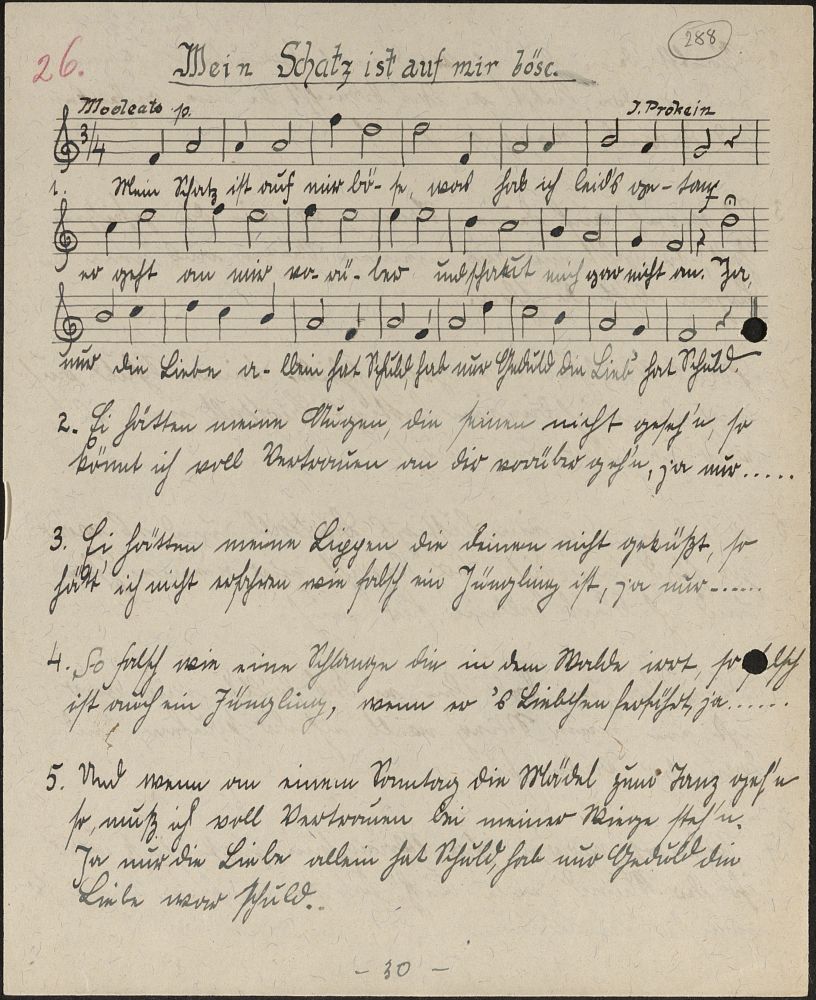 288
26.
Mein Schatz ist auf mir böse.
Modeato p. J. Prokein
3/4
1. Mein Schatz ist auf mir bö- se, was hab ich leids ge- tan,
er geht an mir vo- rü- ber und schaut mich gar nicht an. Ja,
nur die Liebe a- llein hat Schuld, hab nur Geduld die Lieb' hat Schuld.
2. Ei hätten meine Augen, die seinen nicht geseh'n, so
könnt ich voll Vertrauen an dir vorüber geh'n, ja nur.....
3. Ei hätten meine Lippen die deinen nicht geküßt, so
hätt' ich nicht erfahren wie falsch ein Jüngling ist, ja nur......
4. So falsch wie eine Schlange die in dem Walde irrt, so falsch
ist auch ein Jüngling, wenn er 's Liebchen ferführt, ja......
5. Und wenn am einem Sonntag die Mädel zum Tanz geh'n
so, muß ich voll Vertrauen bei meiner Wiege steh'n.
Ja nur die Liebe allein hat Schuld, hab nur Geduld die
Liebe war schuld..
- 30 -